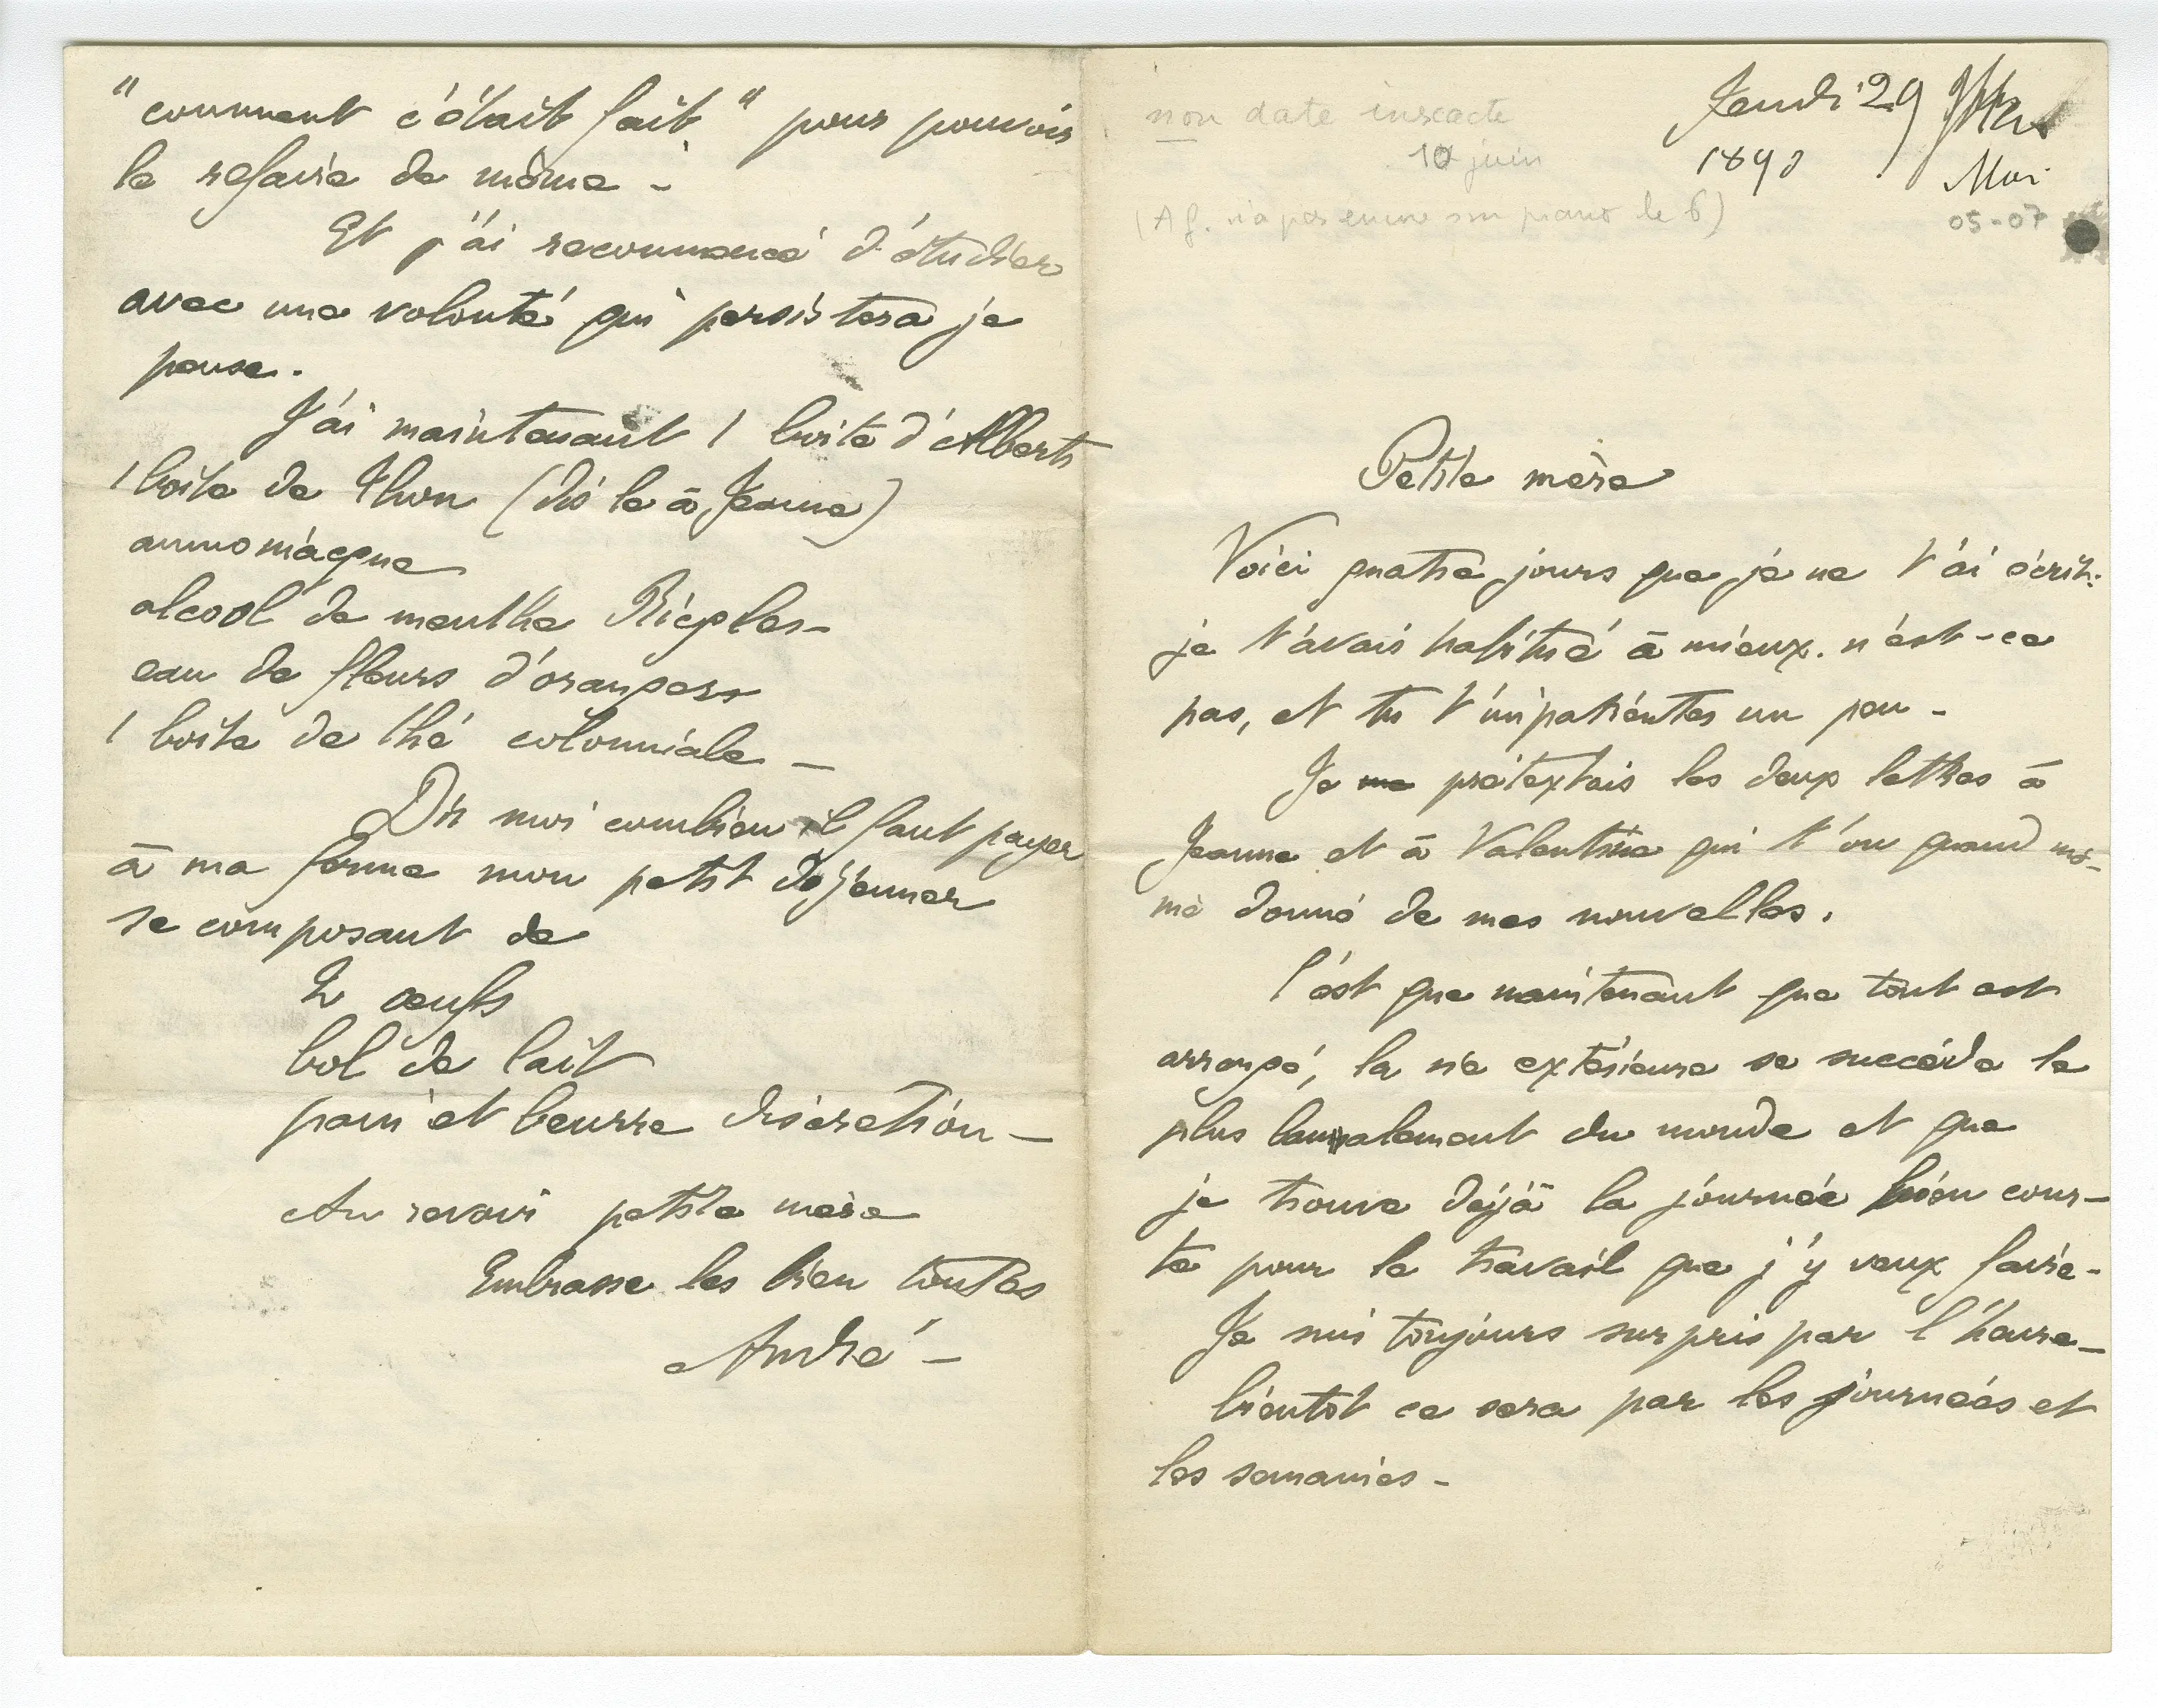 non date inexacte
10 juin
(A G. n'a pas encore son piano le 6)
Jeudi 29
1890
Mai
05-07
Petite mère
Voici quatre jours que je ne t'ai écrit:
je t'avais habitué à mieux. n'est-ce
pas, et tu t'impatientes un peu -
Je me prétextais les deux lettres à
Jeanne et à Valentine qui t'on quand mê-
me donné de mes nouvelles.
C'est que maintenant que tout est
arrangé, la vie extérieure se succède le
plus banalement du monde et que
je trouve déjà la journée bien cour-
te pour le travail que j'y veux faire -
Je suis toujours surpris par l'heure -
bientôt ce sera par les journées et
les semaines -
"comment c'était fait" pour pouvoir
le refaire de même -
Et j'ai recommencé d'étudier
avec une volonté qui persistera je
pense.
J'ai maintenant 1 boite d'Alberts
1 boite de Thon (dis le à Jeanne)
ammoniaque
alcool de menthe Ricqles -
eau de fleurs d'orangers
1 boite de thé colonniale -
Dis moi combien il faut payer
à ma ferme mon petit déjeuner
se composant de
2 œufs
bol de lait
pain et beurre discrétion -
Au revoir petite mère
Embrasse les bien toutes
André -